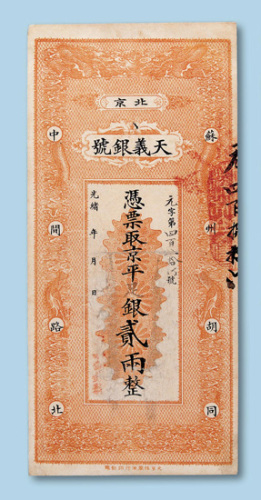 北京
天義銀號
蘇州胡同
中間路北
元字第四百
號
憑票取京平足銀貳兩整
光緒 年 月 日